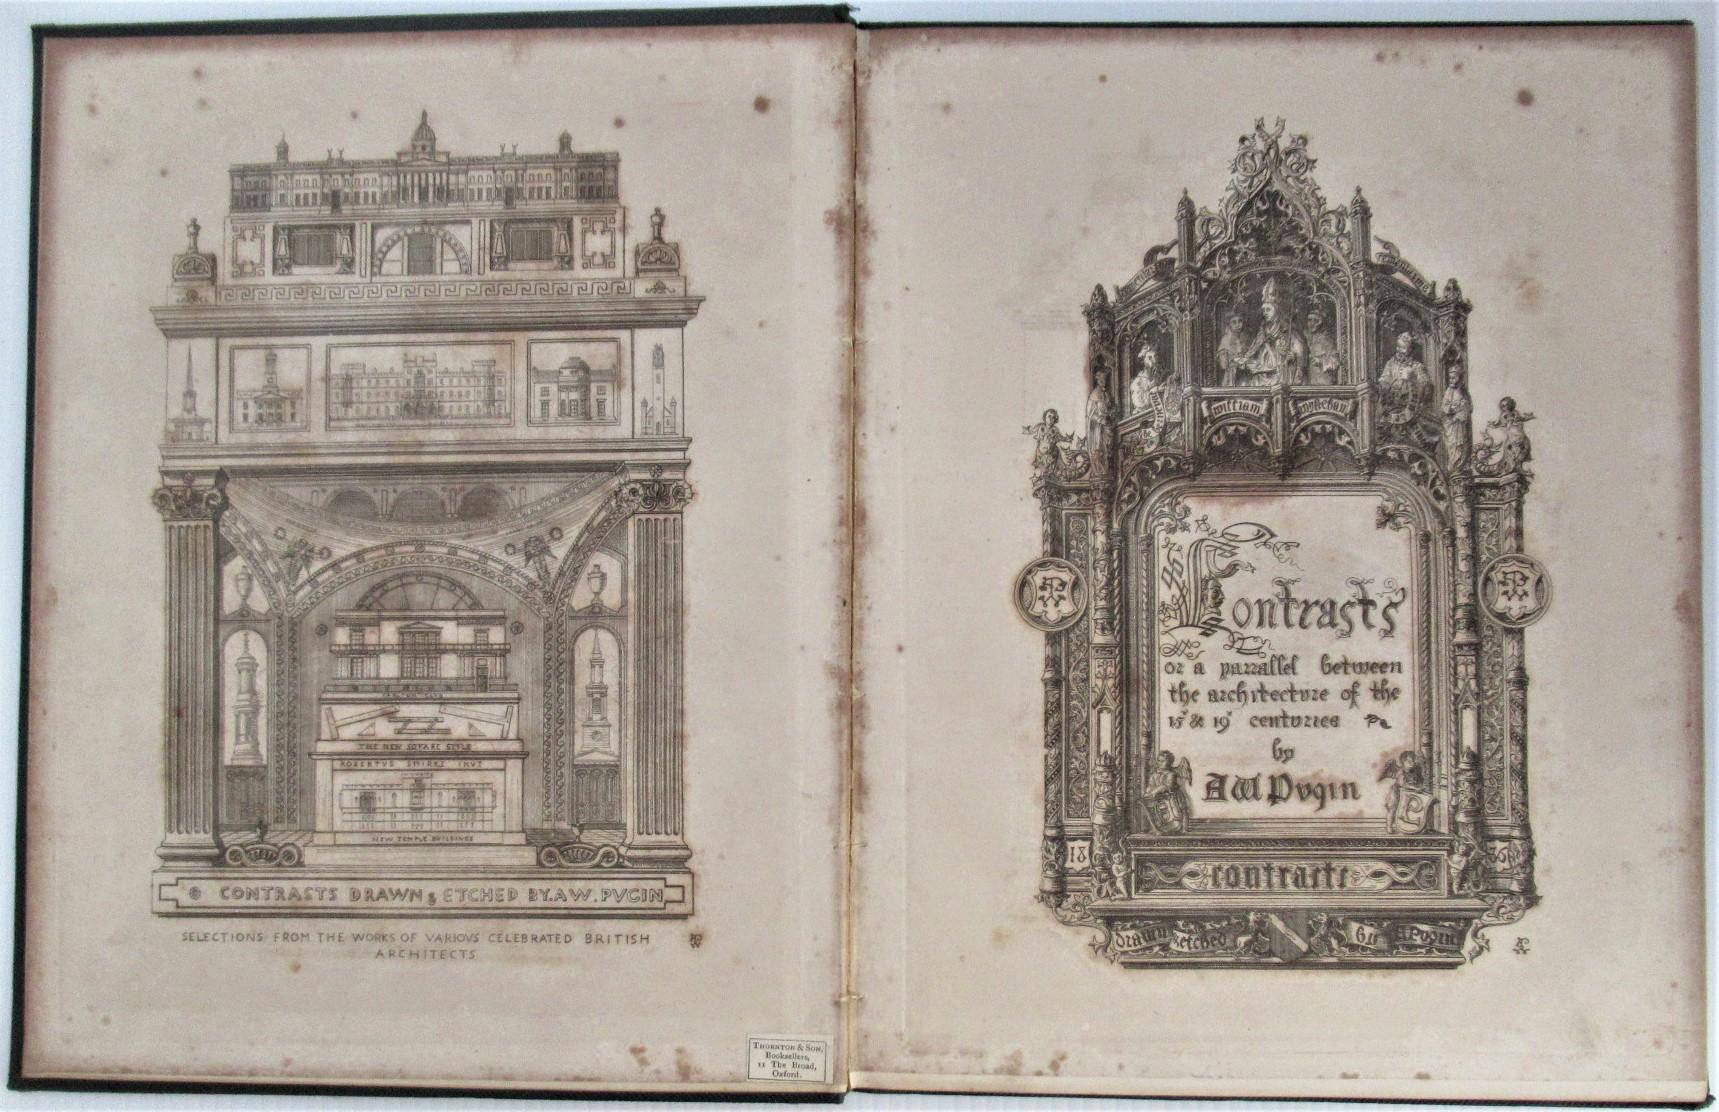 THE NEW SQUARE STYLE
ROBERTVS SMIRKE INVT
NEW TEMPLE BUILDINGS
CONTRASTS DRAWN & ETCHED BY. A W. PVGIN
SELECTIONS FROM THE WORKS OF VARIOVS CELEBRATED BRITISH
ARCHITECTS
THORNTON & SON,
Booksellers,
11 The Broad,
Oxford.
william wykeham
Contrasts
or a parrallel between
the architectvre of the
15th & 19th centuries
by
A W Pvgin
18 36
contrasts
drawn & etched by A Pvgin